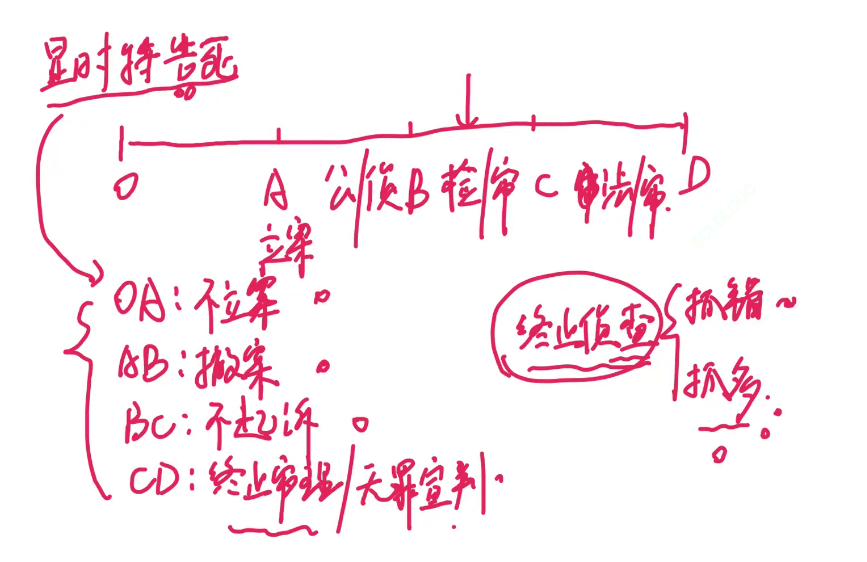 显时特告死
O A 公/侦 B 检/审 C 法/审 D
立案
OA：不立案
AB：撤案
BC：不起诉
CD：终止审理/无罪宣判
终止侦查
抓错
抓多